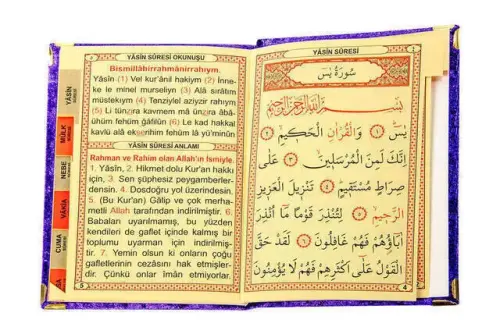 YÂSİN SÛRESİ OKUNUŞU
Bismillâhirrahmânirrahıym.
Yâsîn (1) Vel kur'ânil hakiym (2) İnne-
ke le minel murseliyn (3) Alâ sırâtım
müstekıym (4) Tenziylel aziyzir rahıym
(5) Li tünzira kavmem mâ ünzira âbâ-
ühüm fehüm ğâfilûn (6) Le kad hakkal
kavlü alâ ekserihim fehüm lâ yü'minûn
YÂSİN SÛRESİ ANLAMI
Rahman ve Rahim olan Allah'ın İsmiyle.
1. Yâsîn, 2. Hikmet dolu Kur'an hakkı
için, 3. Sen şüphesiz peygamberler-
densin. 4. Dosdoğru yol üzerindesin.
5. (Bu Kur'an) Gâlip ve çok merha-
metli Allah tarafından indirilmiştir. 6.
Babaları uyarılmamış, bu yüzden
kendileri de gaflet içinde kalmış bir
toplumu uyarman için indirilmiş-
tir. 7. Yemin olsun ki onların çoğu
gafletlerinin cezasını hak etmişler-
dir. Çünkü onlar iman etmiyorlar.
5
YÂSİN
MÜLK
NEBE
VÂKIA
CUMA
YÂSİN SÛRESİ
سُورَةُ يٰسٓ
بِسْمِ اللّٰهِ الرَّحْمٰنِ الرَّحِيمِ
يٰسٓ ﴿١﴾ وَالْقُرْاٰنِ الْحَكِيمِ ﴿٢﴾
اِنَّكَ لَمِنَ الْمُرْسَلِينَ ﴿٣﴾ عَلٰى
صِرَاطٍ مُسْتَقِيمٍ ﴿٤﴾ تَنْزِيلَ الْعَزِيزِ
الرَّحِيمِ ﴿٥﴾ لِتُنْذِرَ قَوْمًا مَٓا اُنْذِرَ
اٰبَٓاؤُهُمْ فَهُمْ غَافِلُونَ ﴿٦﴾ لَقَدْ حَقَّ
الْقَوْلُ عَلٰٓى اَكْثَرِهِمْ فَهُمْ لَا يُؤْمِنُونَ
4